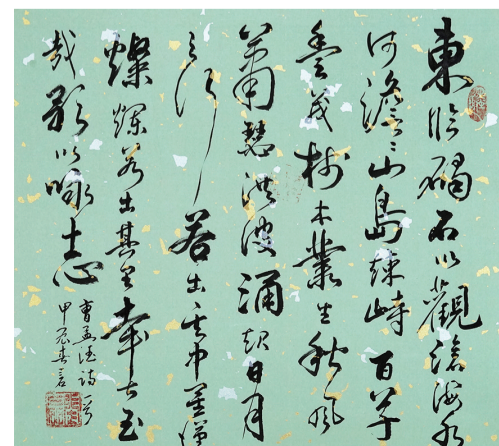 東臨碣石以觀滄海水
何澹々山島竦峙百草
豐茂樹木叢生秋風
蕭瑟洪波涌起日月
之行若出其中星漢
燦爛若出其里幸甚至
哉歌以詠志
曹孟德詩一首
甲辰春